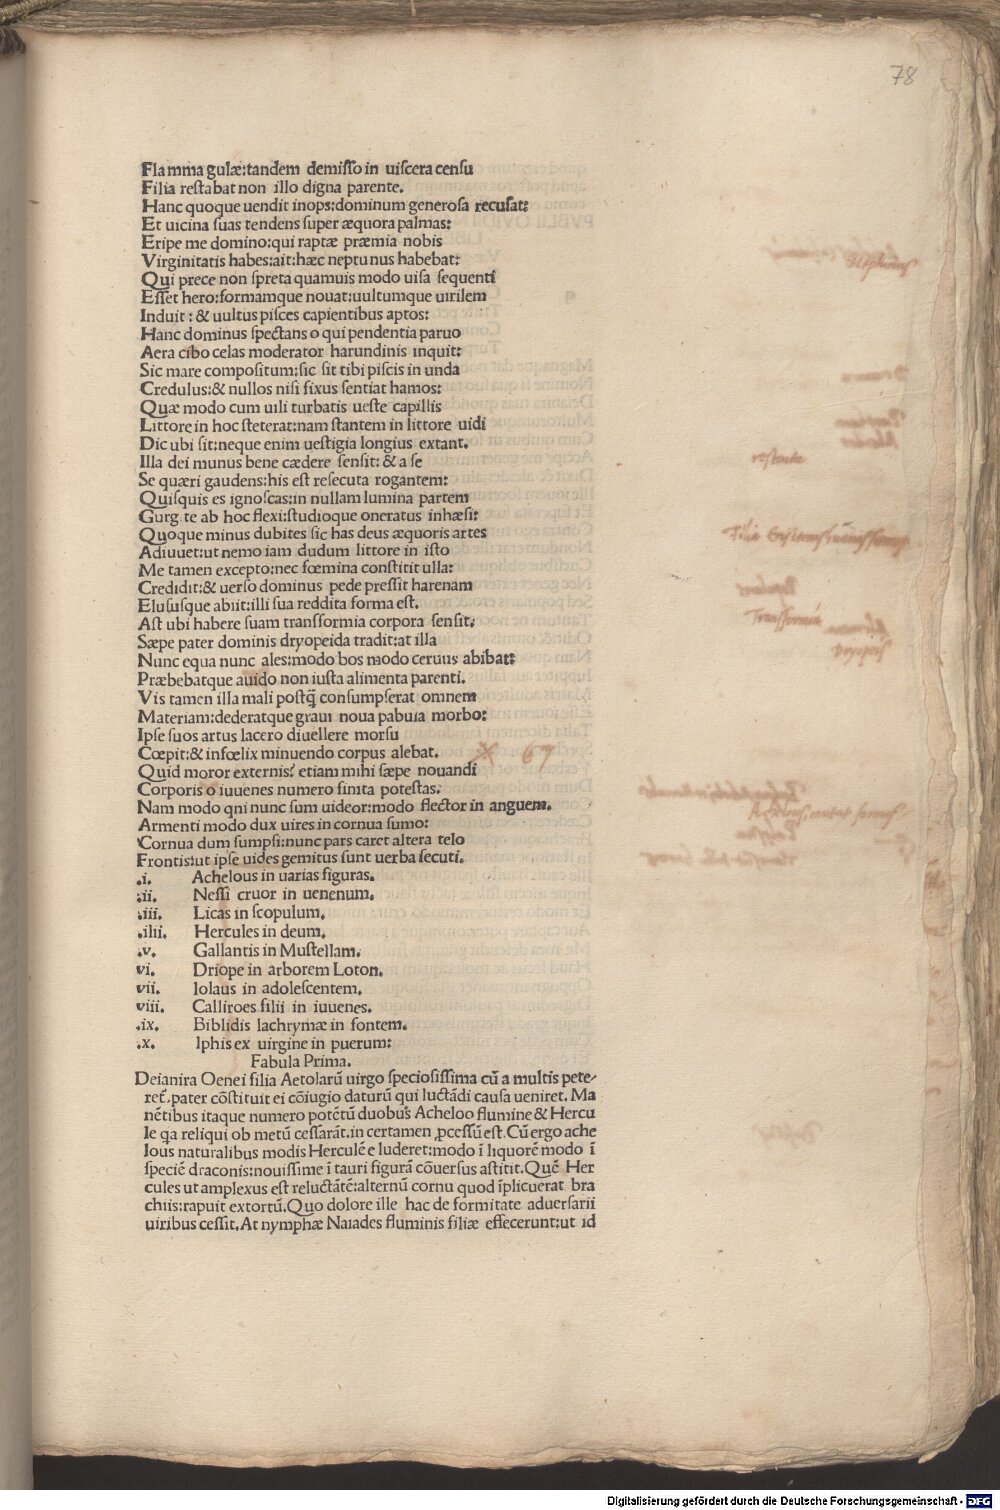 78
Flamma gulæ:tandem demisso in uiscera censu
Filia restabat non illo digna parente.
Hanc quoque uendit inops:dominum generosa recusat:
Et uicina suas tendens super æquora palmas:
Eripe me domino:qui raptæ præmia nobis
Virginitatis habes:ait:hæc neptunus habebat:
Qui prece non spreta quamuis modo uisa sequenti
Esset hero:formamque nouat:uultumque uirilem
Induit: & uultus pisces capientibus aptos:
Hanc dominus spectans o qui pendentia paruo
Aera cibo celas moderator harundinis inquit:
Sic mare compositum:sic sit tibi piscis in unda
Credulus:& nullos nisi fixus sentiat hamos:
Quæ modo cum uili turbatis ueste capillis
Littore in hoc steterat:nam stantem in littore uidi
Dic ubi sit:neque enim uestigia longius extant.
Illa dei munus bene cædere sensit: & a se
Se quæri gaudens:his est resecuta rogantem:
Quisquis es ignoscas:in nullam lumina partem
Gurg te ab hoc flexi:studioque oneratus inhæsi:
Quoque minus dubites sic has deus æquoris artes
Adiuuet:ut nemo iam dudum littore in isto
Me tamen excepto:nec fœmina constitit ulla:
Credidit:& uerso dominus pede pressit harenam
Elususque abiit:illi sua reddita forma est.
Ast ubi habere suam transformia corpora sensit:
Sæpe pater dominis dryopeida tradit:at illa
Nunc equa nunc ales:modo bos modo ceruus abibat:
Præbebatque auido non iusta alimenta parenti.
Vis tamen illa mali postq̃ consumpserat omnem
Materiam:dederatque graui noua pabula morbo:
Ipse suos artus lacero diuellere morsu
Cœpit:& infœlix minuendo corpus alebat. 67
Quid moror externis? etiam mihi sæpe nouandi
Corporis o iuuenes numero finita potestas:
Nam modo qni nunc sum uideor:modo flector in anguem.
Armenti modo dux uires in cornua sumo:
Cornua dum sumpsi:nunc pars caret altera telo
Frontis:ut ipse uides gemitus sunt uerba secuti.
.i. Achelous in uarias figuras.
.ii. Nessi cruor in uenenum.
.iii. Licas in scopulum.
.iiii. Hercules in deum.
.v. Gallantis in Mustellam.
vi. Driope in arborem Loton.
vii. Iolaus in adolescentem.
viii. Calliroes filii in iuuenes.
.ix. Biblidis lachrymæ in fontem.
.x. Iphis ex uirgine in puerum:
Fabula Prima.
Deianira Oenei filia Aetolarũ uirgo speciosissima cũ a multis pete/
ret̃.pater cõstituit ei cõiugio daturũ qui luctãdi causa ueniret. Ma
nẽtibus itaque numero potẽtũ duobus Acheloo flumine & Hercu
le qa reliqui ob metũ cessarãt.in certamen ꝓcessũ est. Cũ ergo ache
lous naturalibus modis Herculẽ e luderet:modo ĩ liquorẽ modo ĩ
speciẽ draconis:nouissime ĩ tauri figurã cõuersus astitit. Quẽ Her
cules ut amplexus est reluctãtẽ:alternũ cornu quod ĩplicuerat bra
chiis:rapuit extortũ. Quo dolore ille hac de formitate aduersarii
uiribus cessit. At nymphæ Naiades fluminis filiæ effecerunt:ut id
Digitalisierung gefördert durch die Deutsche Forschungsgemeinschaft - DFG